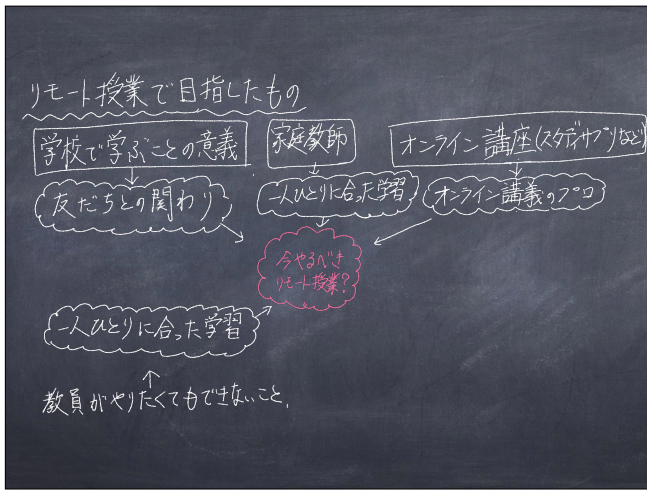 リモート授業で目指したもの
学校で学ぶことの意義
家庭教師
オンライン講座(スタディサプリなど)
友だちとの関わり
一人ひとりに合った学習
オンライン講義のプロ
今やるべき
リモート授業?
一人ひとりに合った学習
教員がやりたくてもできないこと。